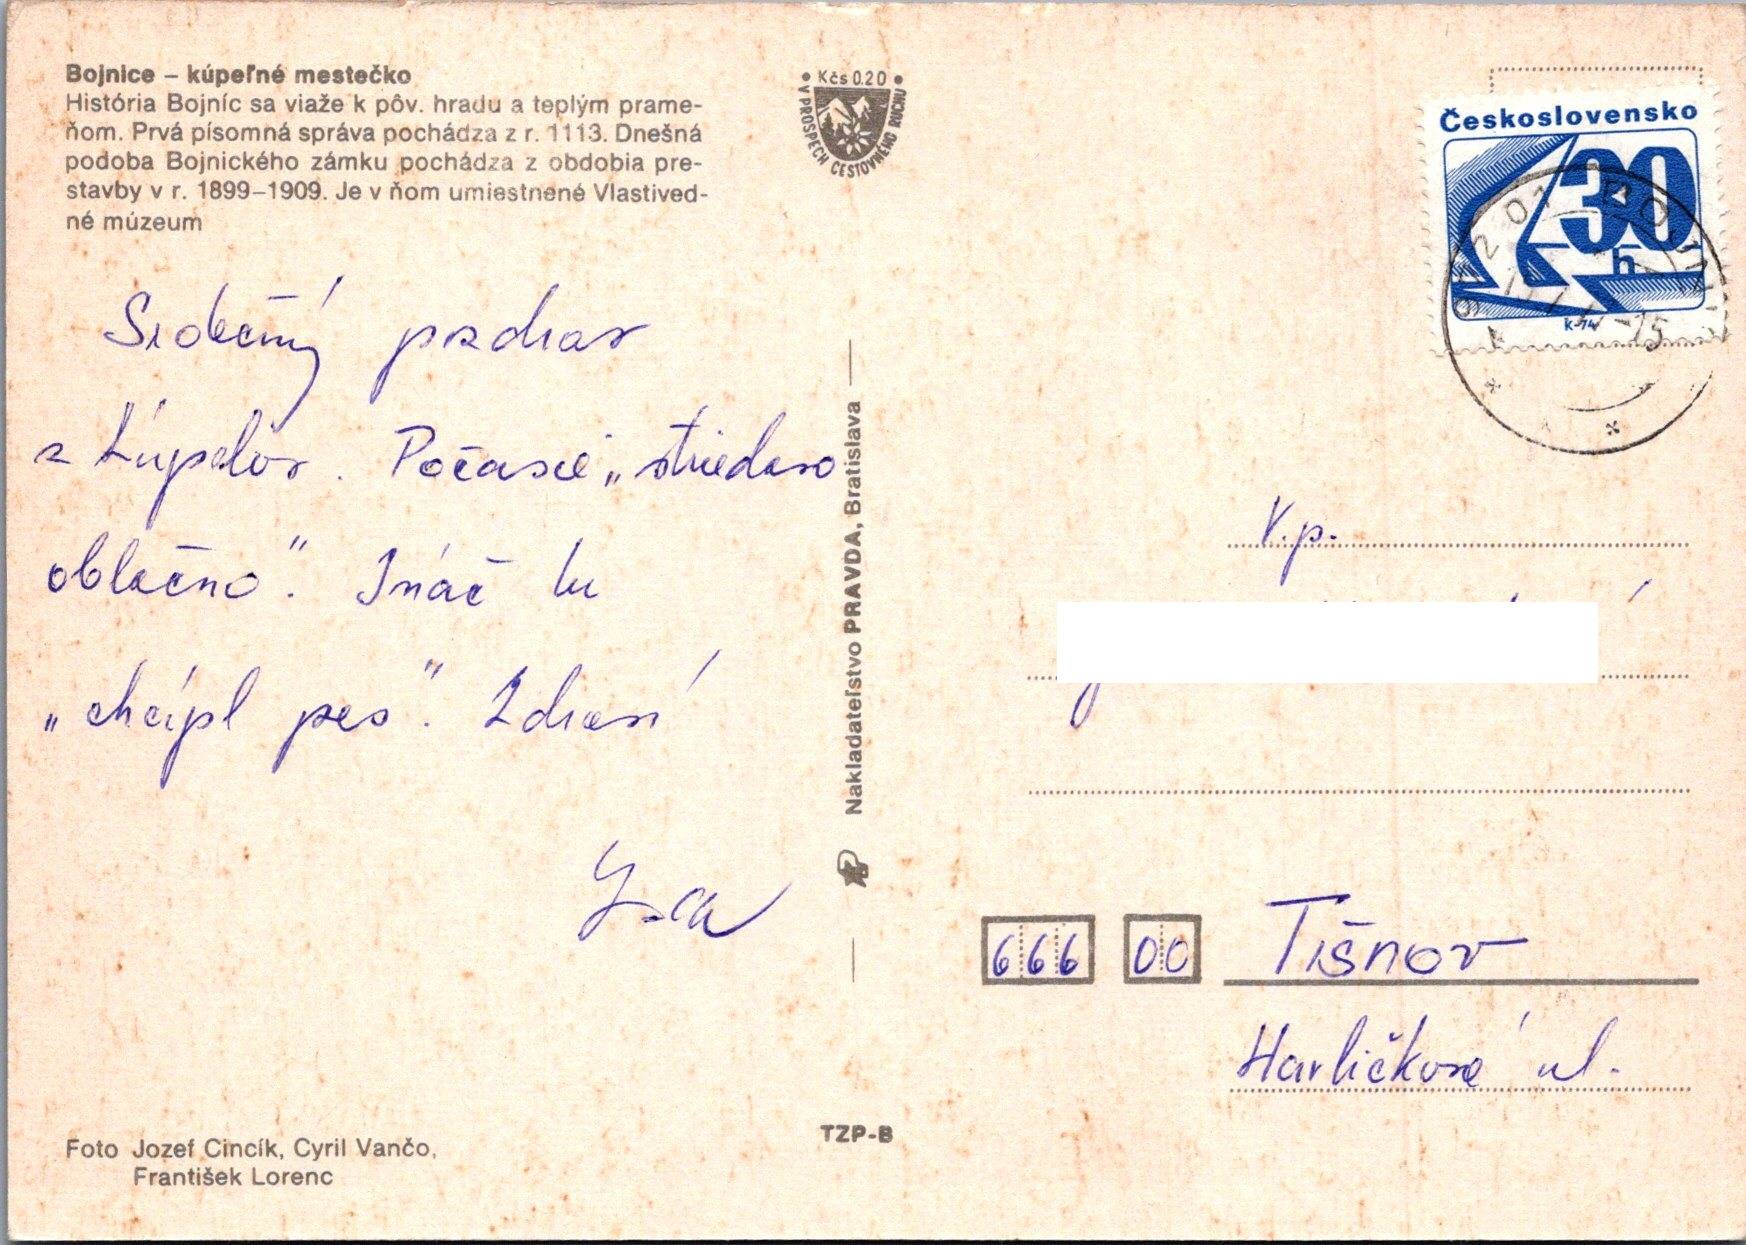 Bojnice – kúpeľné mestečko
História Bojníc sa viaže k pôv. hradu a teplým prame-
ňom. Prvá písomná správa pochádza z r. 1113. Dnešná
podoba Bojnického zámku pochádza z obdobia pre-
stavby v r. 1899–1909. Je v ňom umiestnené Vlastived-
né múzeum
Srdečný pozdrav
z kúpelov. Počasie „striedavo
oblačno". Ináč tu
„chcípl pes". Zdraví
Foto Jozef Cincík, Cyril Vančo,
František Lorenc
Kčs 0.20
V PROSPECH CESTOVNÉHO RUCHU
Nakladateľstvo PRAVDA, Bratislava
TZP-B
Československo
30
h
V.p.
666 00 Tišnov
Havlíčkova ul.